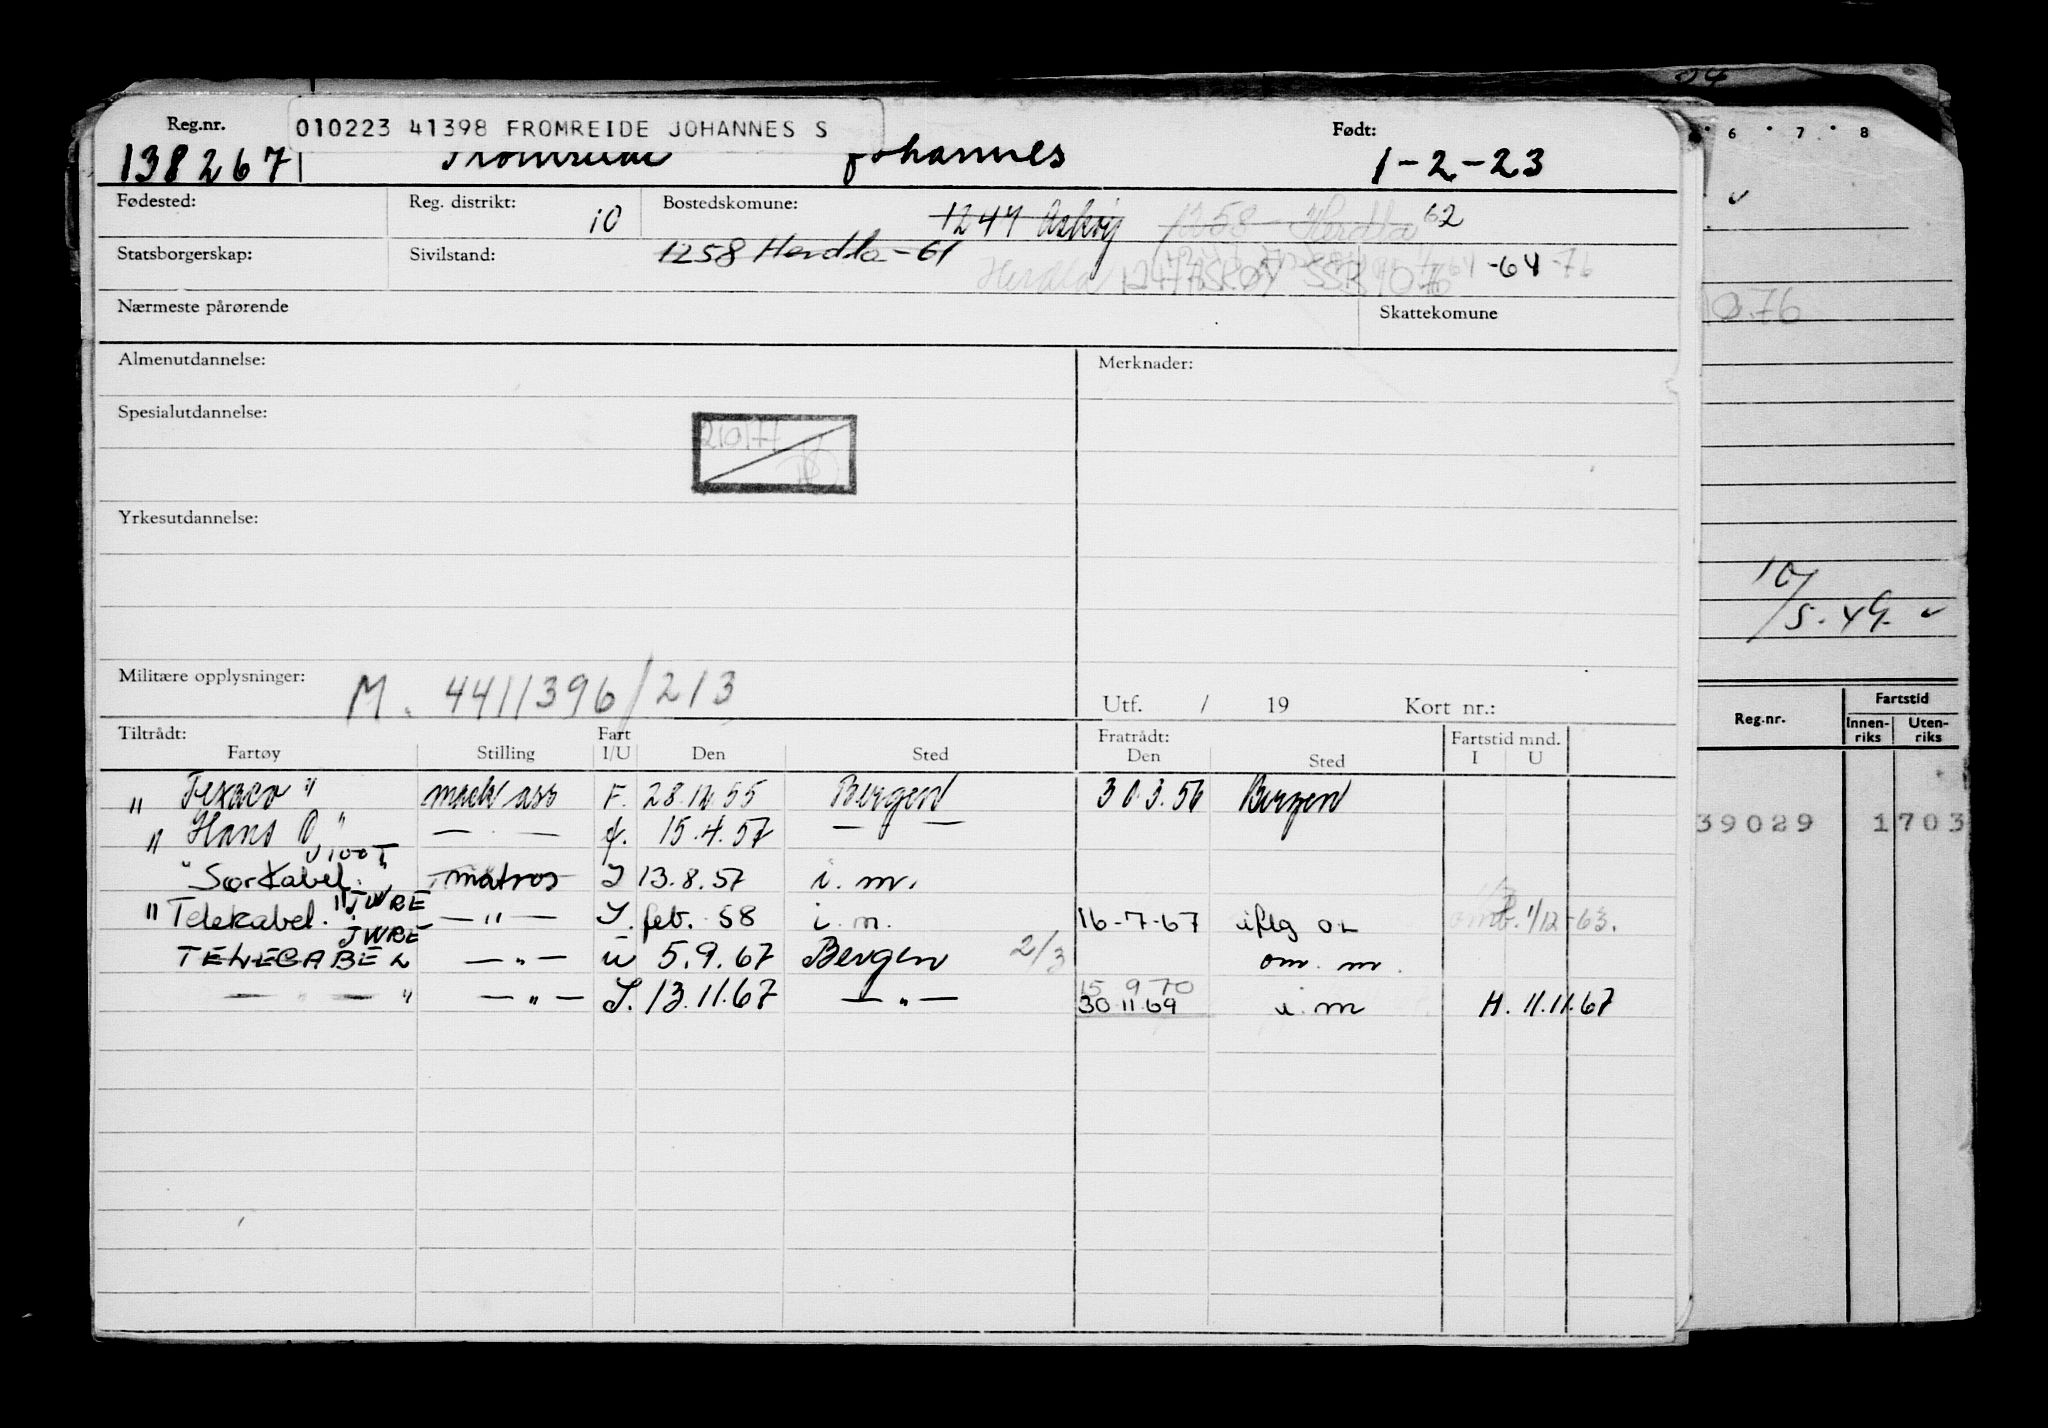 Reg.nr. 010223 41398 FROMREIDE JOHANNES S Født:
138267 Fromreide Johannes 1-2-23
Fødested: Reg. distrikt: 10 Bostedskomune: 1247 Askøy 1258 - Herdla 62
Statsborgerskap: Sivilstand: 1258 Herdla - 61
Herdla 1247 ASKØY -64 -76
Nærmeste pårørende Skattekomune
Almenutdannelse: Merknader:
Spesialutdannelse:
Yrkesutdannelse:
Militære opplysninger: M. 4411396/213
Utf. / 19 Kort nr.:
Tiltrådt: Fart Fratrådt: Fartstid mnd.
Fartøy Stilling I/U Den Sted Den Sted I U
" Texaco " mask ass F. 28.12.55 Bergen 30.3.56 Bergen
" Hans O " — . — f. 15.4.57 — " —
"Sorkabel." matros I 13.8.57 i. m.
JWBE
"Telekabel." — " — I. feb. 58 i. m. 16-7-67 iflg om. 1/12-63.
JWBE
TELEGABEL — " — u 5.9.67 Bergen 2/3 om. m.
— " — " — " — I. 13.11.67 — " — 15 9 70
30.11.69 i. m H. 11.11.67
6 7 8
10.76
10/5.49.
Reg.nr. Fartstid
Innenriks Utenriks
39029 1703